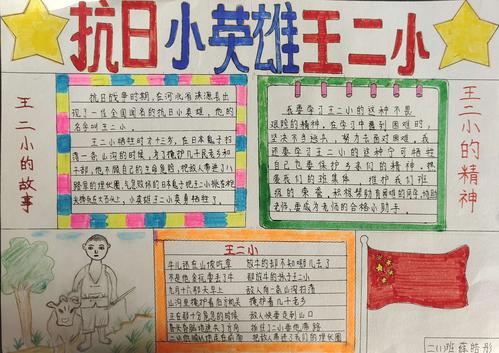 抗日小英雄王二小
王二小的故事
抗日战争时期,在河北省涞源县出
现了一位全国闻名的抗日小英雄,他的
名字叫王二小。
王二小牺牲时才十三岁,在日本鬼子扫
荡一条山沟的时候,为了掩护几千民老乡和
干部,他不顾自己的生命危险,把敌人带进了八
路军的埋伏圈,气急败坏的日本鬼子把王二小挑在枪尖
摔死在大石头上,小英雄王二小英勇牺牲了。
我要学习王二小的这种不畏
艰险的精神,在学习中遇到困难时,
坚决不当逃兵,努力去面对困难。我
还要学习王二小的这种宁可牺牲
自己也要保护乡亲们的精神,热
爱我们的班集体,维护我们班
级的荣誉,积极帮助有困难的同学,协助
老师,要成为老师的合格小助手。
王二小的精神
王二小
牛儿还在山坡吃草 放牛的却不知哪儿去了
不是他贪玩耍丢了牛 那放牛的孩子王二小
九月十六那天早上 敌人向一条山沟扫荡
山沟里掩护着后方机关 掩护着几千老乡
正在那十分危急的时候 敌人快要走到山口
昏头昏脑地迷失了方向 抓住了二小要他带路
二小他顺从地走在前面 把敌人带进了我们的埋伏圈
二(1)班